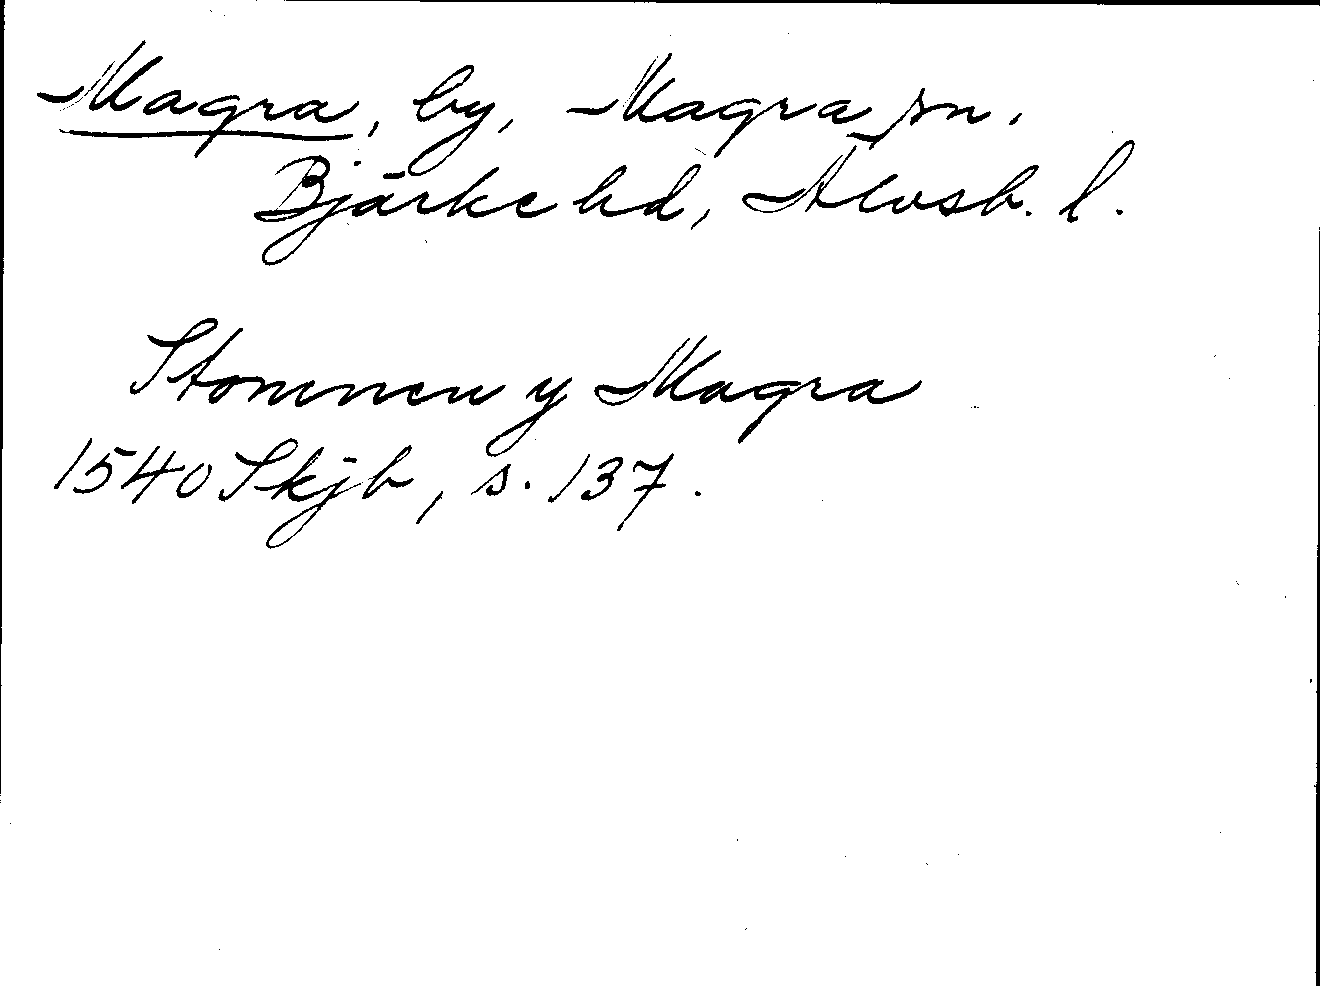 Magra, by, Magra sn.
Bjärke hd, Älvsb. l.
Stommen y Magra
1540 Skjb, s. 137.